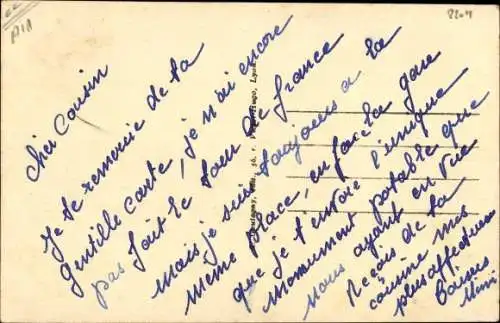 cher Cousin
Je te remercie de ta
gentille carte, je n'ai encore
pas fait le tour de France
mais je suis toujours a la
même place, en face la gare
que je t'envoie l'unique
monument potable que
nous ayant en vue
Reçois de ta
cousine mes
plus affectueux
baisers
Mimi